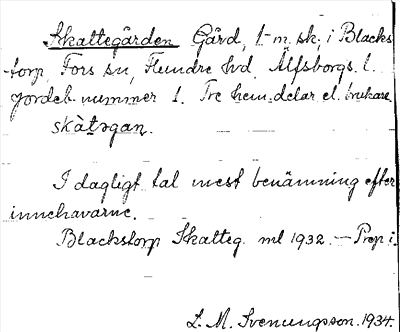 Skattegården Gård, 1 m. sk. i Blacks
torp, Fors sn, Flundre hd, Älfsborgs l.
jordeb. nummer 1. Tre hem.delar el. brukare
skàtəgan.
I dagligt tal mest benämning efter
innehavarne.
Blackstorp Skatteg. ml 1932. — Prep i.
L. M. Svenungsson. 1934.